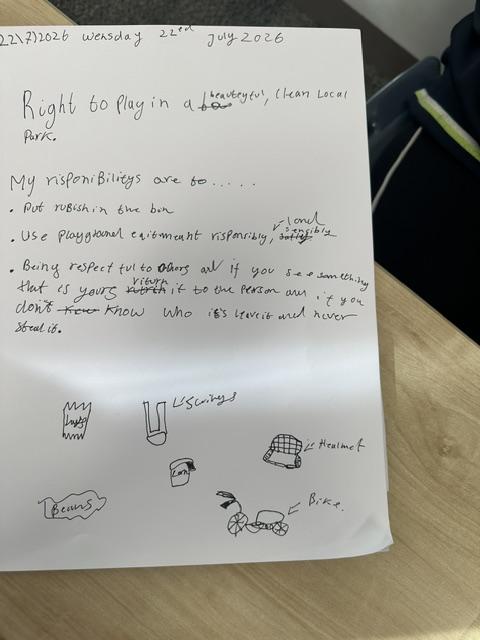 22/7/2026 wensday 22ed July 2026
Right to play in a beauteyful, clean Local
Park.
My risponibilitys are to.....
• Put rubish in the bin
• Use playground eqitmeant risponsibly, and sensibly
• Being respectful to others and if you see something
that is yours riturn it to the person and if you
don't know who it's leave it and never
steal it.
Swings
Healmet
Can
Beans
Bike.